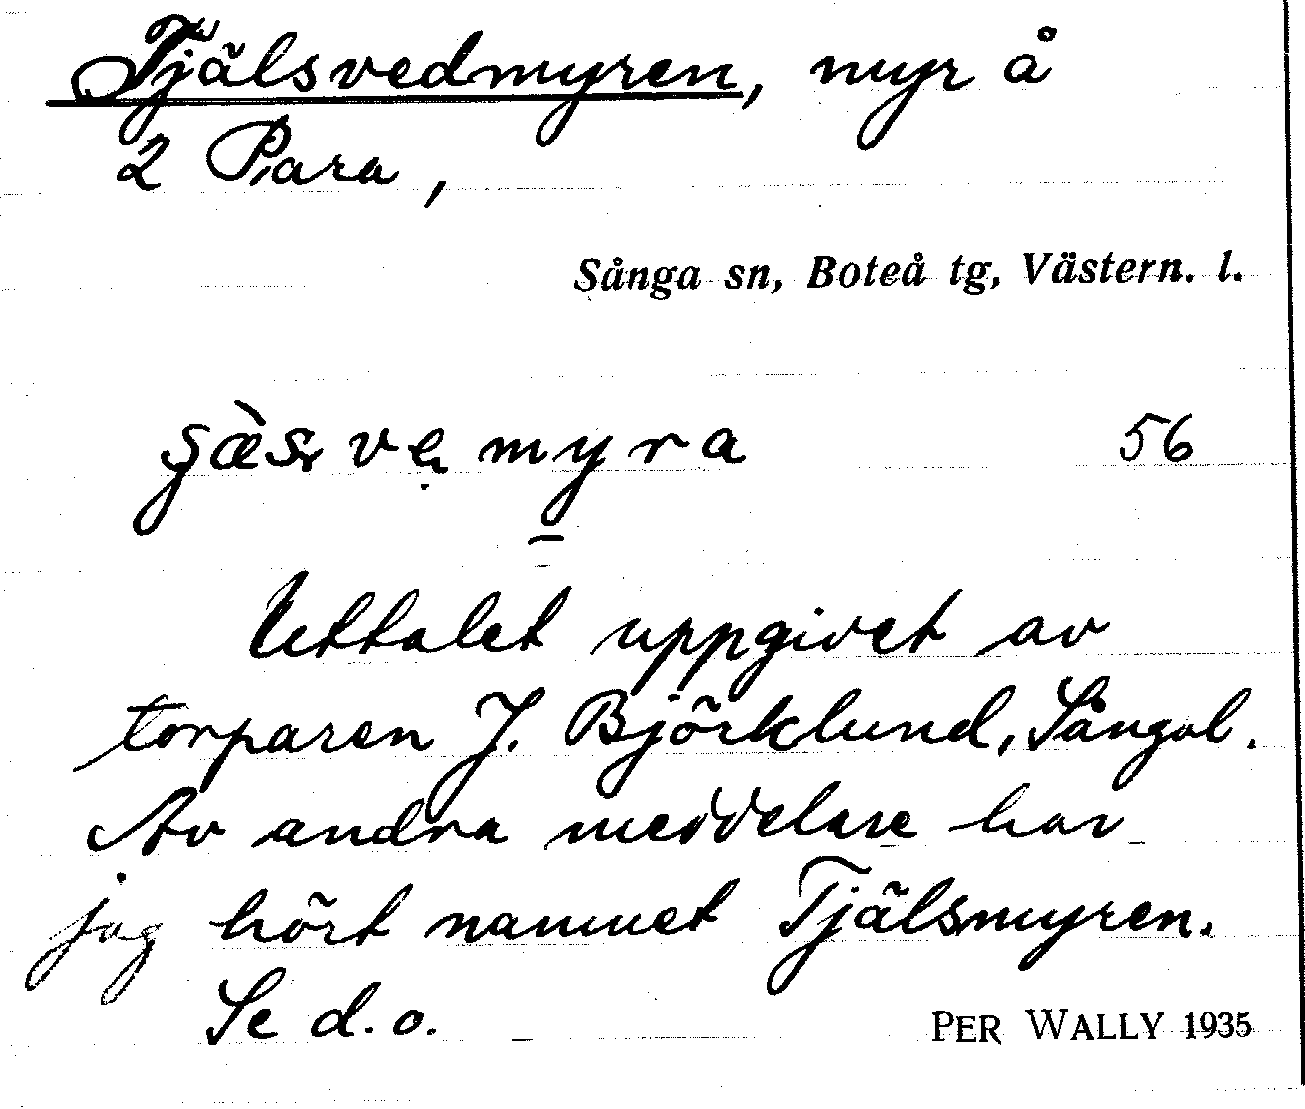 Tjälsvedmyren, myr å
2 Para,
Sånga sn, Boteå tg, Västern. l.
56
Uttalet uppgivet av
torparen J. Björklund, Sångal.
Av andra meddelare har
jag hört namnet Tjälsmyren.
Se d.o.
PER WALLY 1935